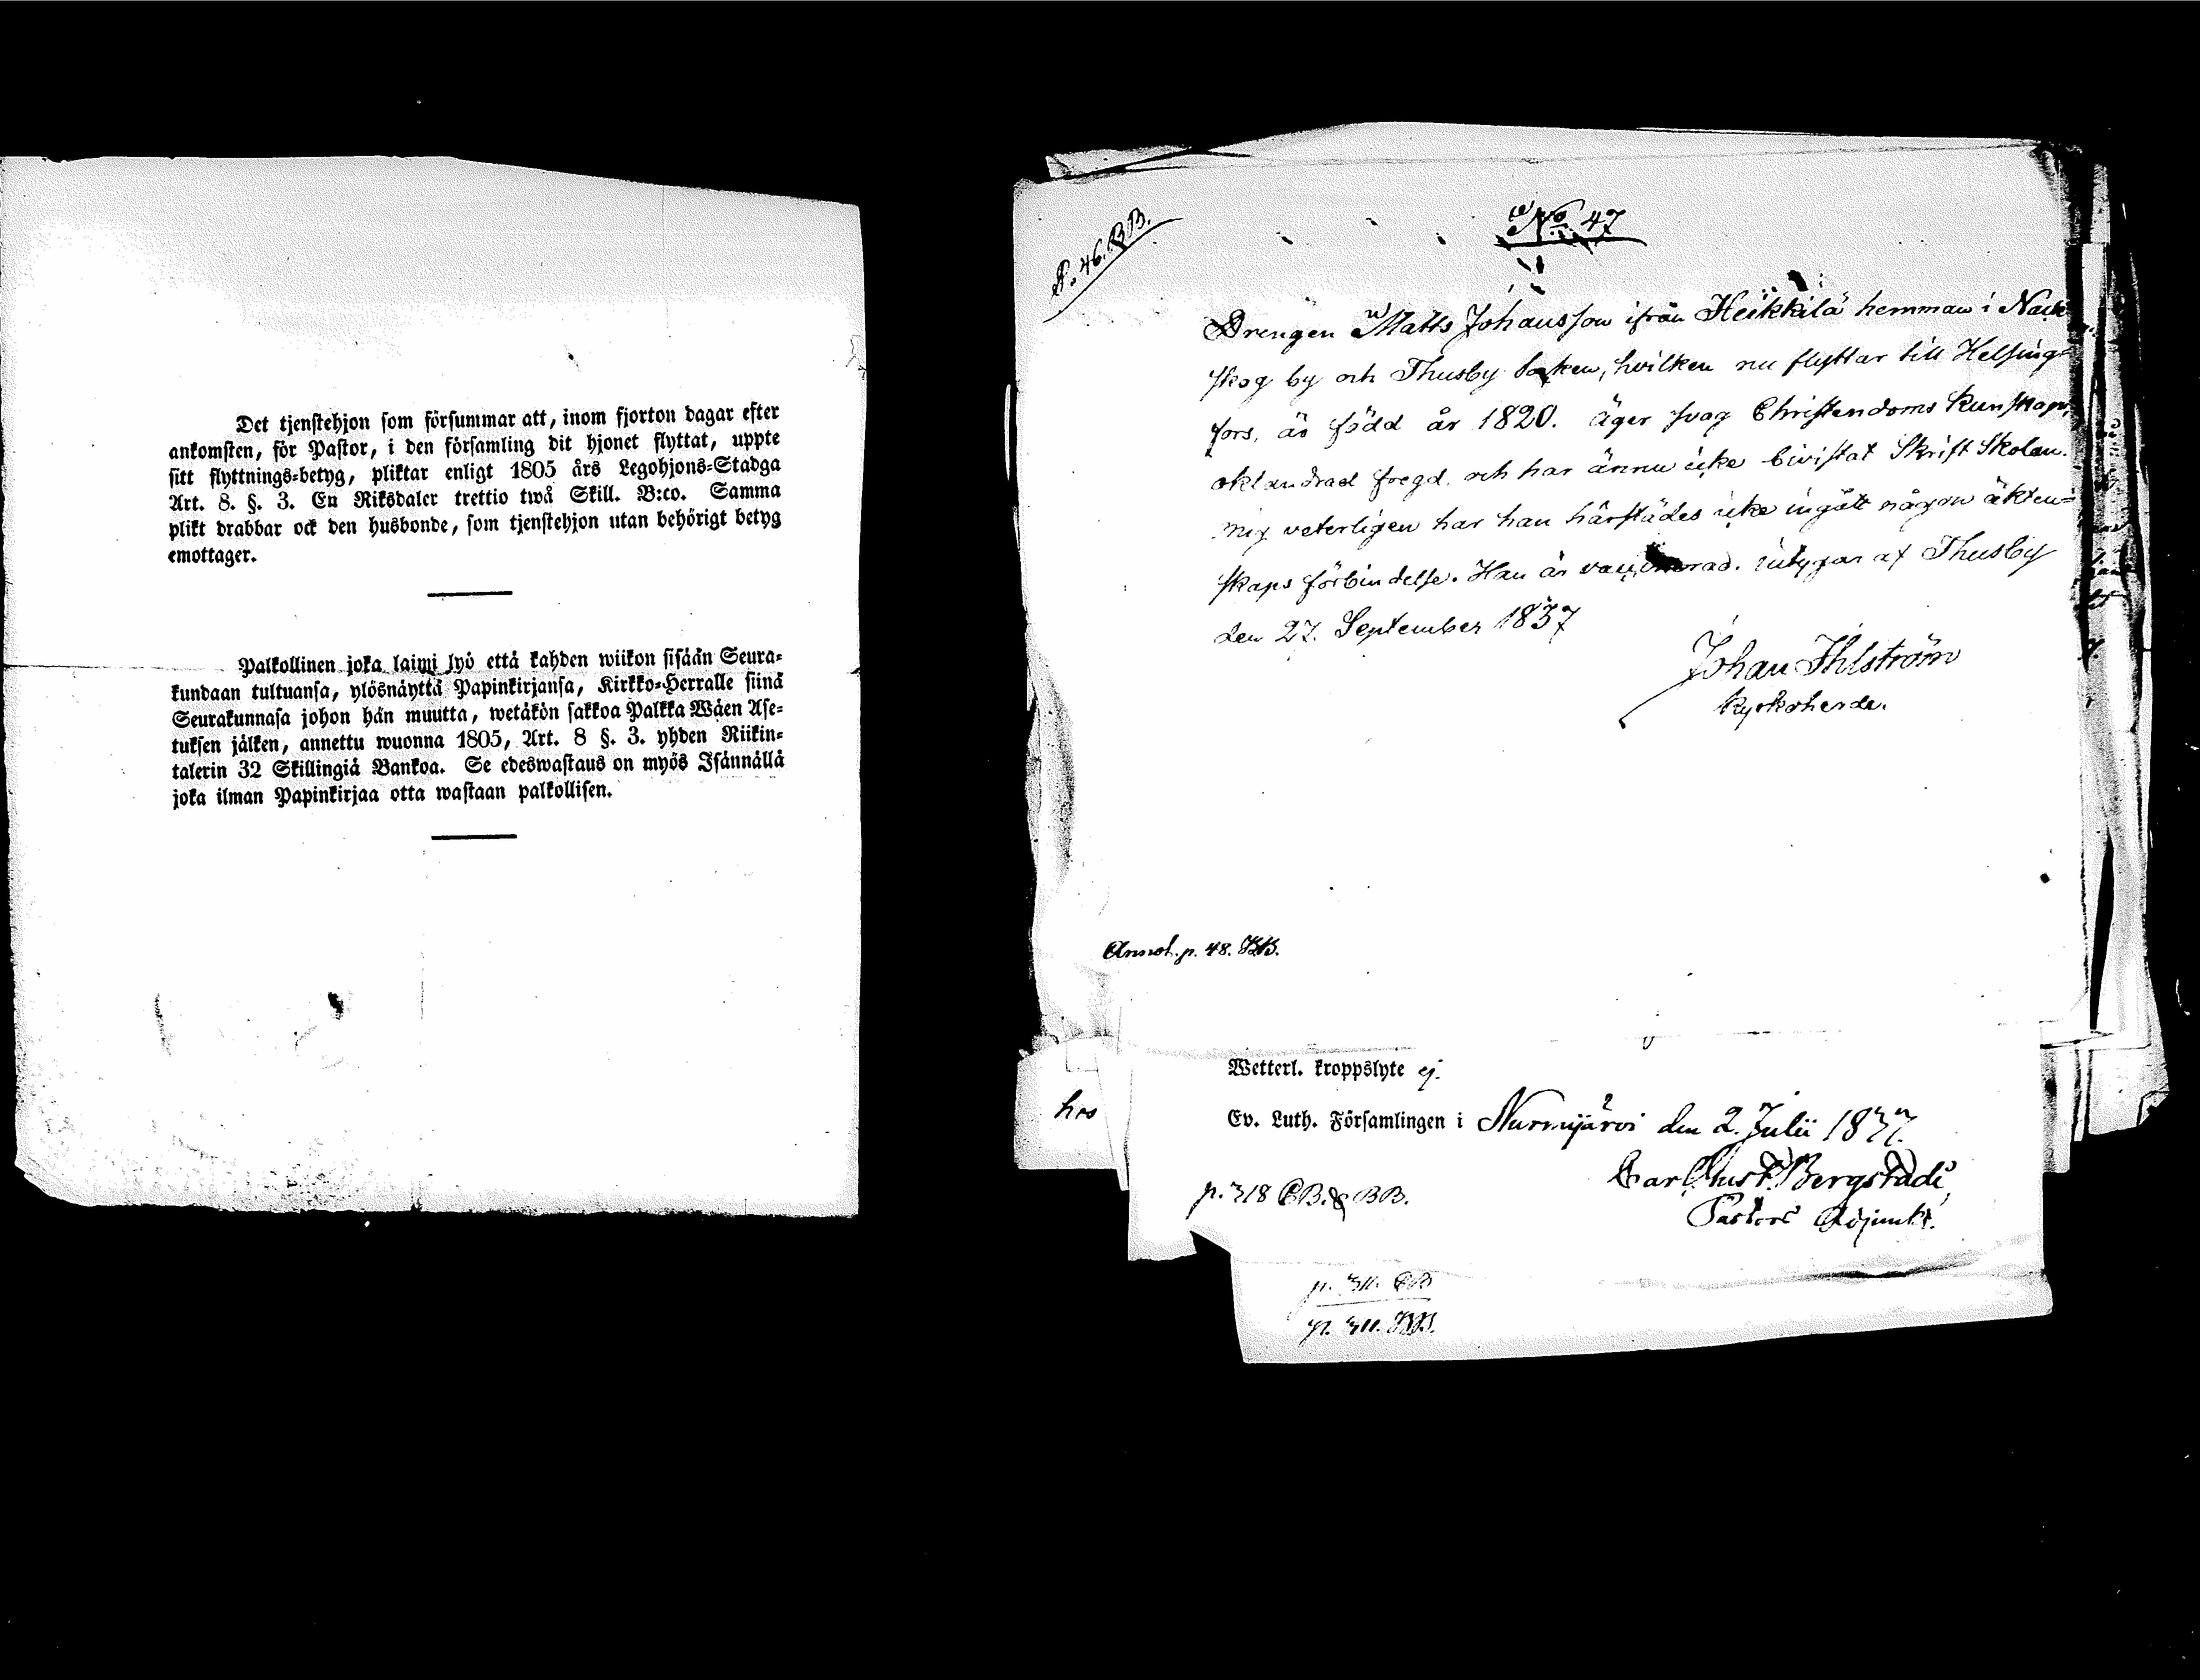 Det tjenstehjon som försummar att, inom fjorton dagar efter
ankomsten, för Pastor, i den församling dit hjonet flyttat, uppte
sitt flyttnings-betyg, pliktar enligt 1805 års Legohjons-Stadga
Art. 8. §. 3. En Riksdaler trettio twå Skill. B:co. Samma
plikt drabbar ock den husbonde, som tjenstehjon utan behörigt betyg
emottager.
Palkollinen joka laimi lyö että kahden wiikon sisään Seura-
kundaan tultuansa, ylösnäyttä Papinkirjansa, Kirkko-Herralle siinä
Seurakunnasa johon hän muutta, wetäkön sakkoa Palkka Wäen Ase-
tuksen jälken, annettu wuonna 1805, Art. 8 §. 3. yhden Riikin-
talerin 32 Skillingiä Bankoa. Se edeswastaus on myös Isännällä
joka ilman Papinkirjaa otta wastaan palkollisen.
P. 46. BB.
No 47
Drengen Matts Johansson ifrån Heikkilä hemman i Nack
skog by och Thusby Socken, hvilken nu flyttar till Helsing=
fors, är född år 1820. äger svag Christendoms Kunskap,
oklandrad fregd. och har ännu icke bivistat Skrift Skolan.
mig veterligen har han härstädes icke ingått någon äkten=
skaps förbindelse. Han är vaccinerad. intygar af Thusby
den 27. September 1837
Johan Ihlström
Kyrkoherde.
Annot. p. 48. BB.
hos
Wetterl. kroppslyte ej.
Ev. Luth. Församlingen i Nurmijärvi den 2. Julii 1837.
Carl Gust. Bergstadi,
Pastors Adjunkt.
p. 318 CB. & BB.
p. 311. CB
p. 311. BB.